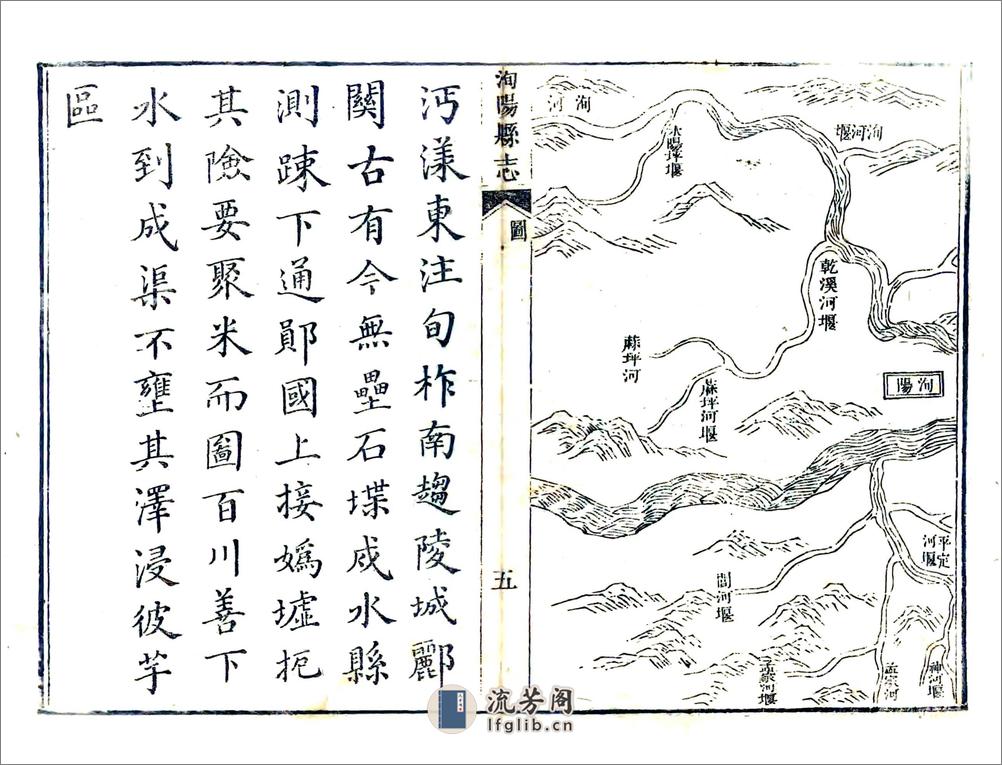 洵河堰
洵河
乾溪河堰
洵陽
蔴坪河
蔴坪河堰
平定河堰
閭河堰
神河堰
洵陽縣志
圖
五
沔漾東注旬柞南趨陵城酈
關古有今無壘石堞戍水縣
測踈下通鄖國上接嬀墟扼
其險要聚米而圖百川善下
水到成渠不壅其澤浸彼芋
區
流芳阁
lfglib.cn